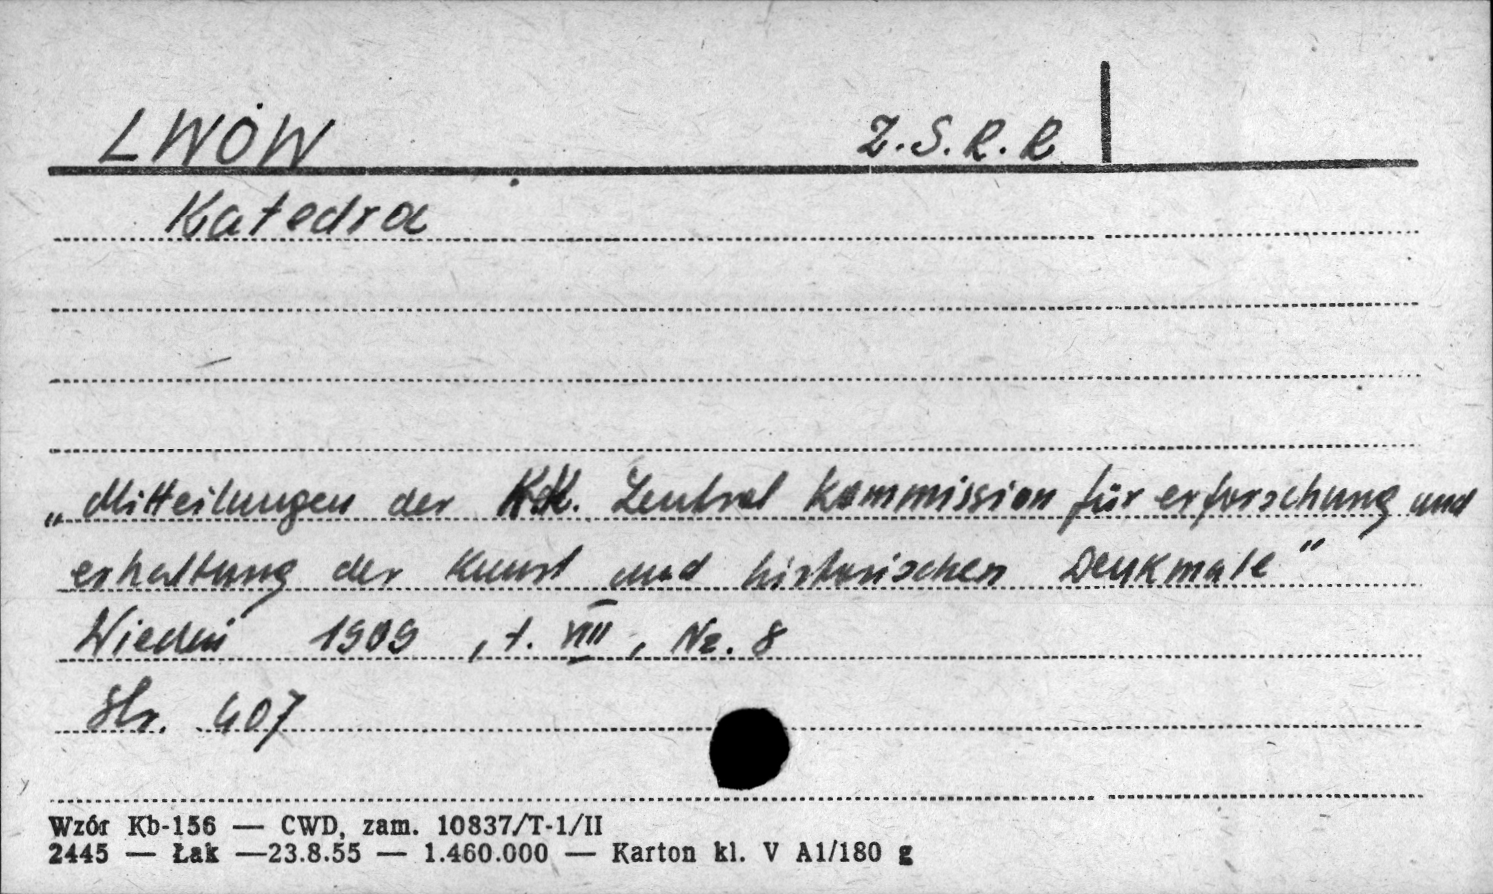 LWÓW Z.S.R.R
Katedra
„Mitteilungen der K.K. Zentral Kommission für erforschung und
erhaltung der Kunst und historischen Denkmale"
Wiedeń 1909, t. VIII, Nr. 8
Str. 407
Wzór Kb-156 — CWD, zam. 10837/T-1/II
2445 — Łak —23.8.55 — 1.460.000 — Karton kl. V A1/180 g